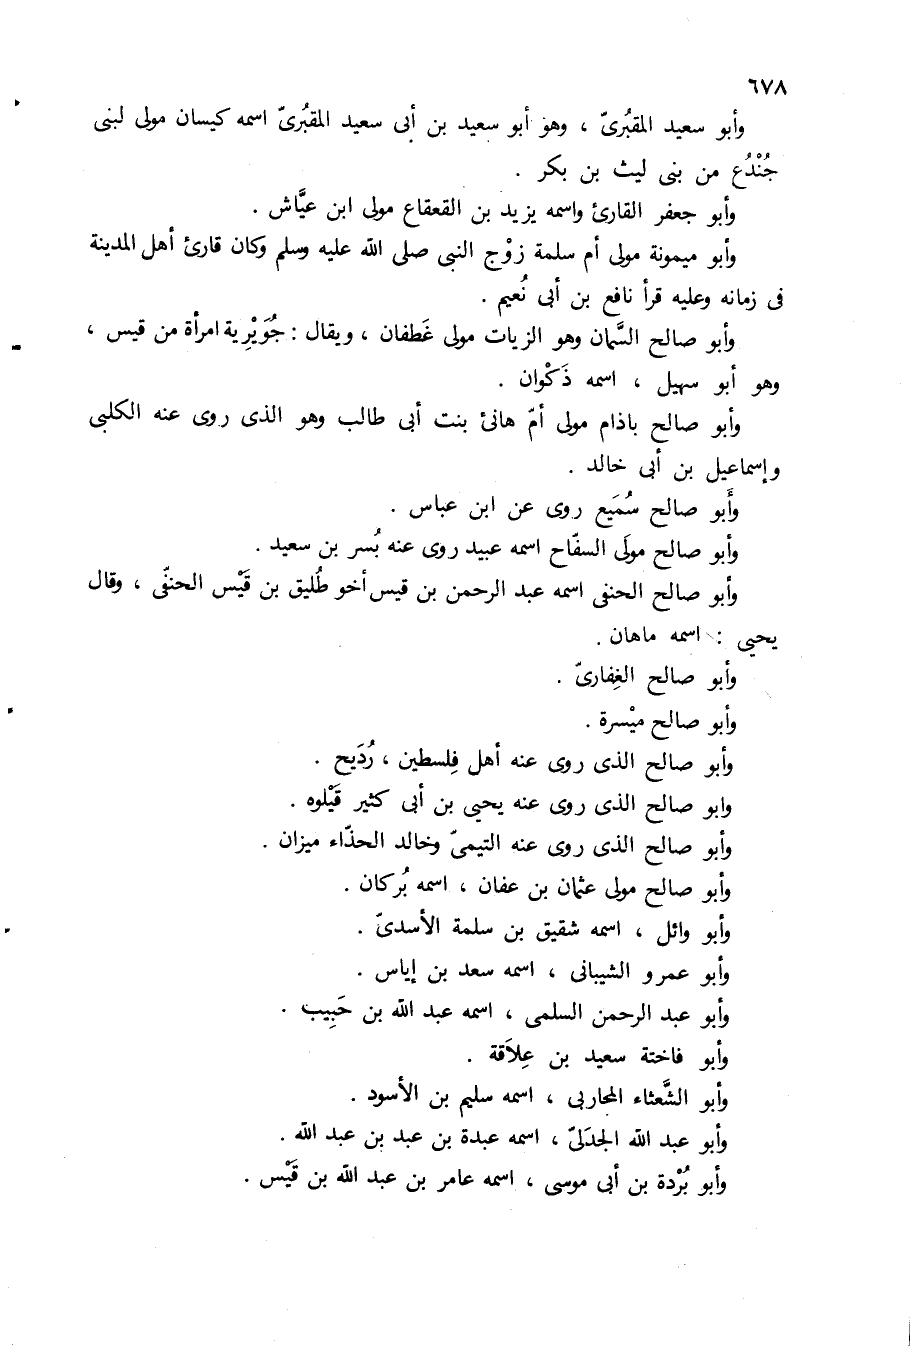 ٦٧٨
وأبو سعيد المقبُرىّ ، وهو أبو سعيد بن أبى سعيد المقبُرىّ اسمه كيسان مولى لبنى
جُنْدُع من بنى ليث بن بكر .
وأبو جعفر القارئ واسمه يزيد بن القعقاع مولى ابن عيَّاش .
وأبو ميمونة مولى أم سلمة زوْج النبى صلى الله عليه وسلم وكان قارئ أهل المدينة
فى زمانه وعليه قرأ نافع بن أبى نُعيم .
وأبو صالح السَّمان وهو الزيات مولى غَطفان ، ويقال : جُوَيْرِية امرأة من قيس ،
وهو أبو سهيل ، اسمه ذَكْوان .
وأبو صالح باذام مولى أمّ هانئ بنت أبى طالب وهو الذى روى عنه الكلبى
وإسماعيل بن أبى خالد .
وأَبو صالح سُمَيع روى عن ابن عباس .
وأبو صالح مولَى السفّاح اسمه عبيد روى عنه بُسر بن سعيد .
وأبو صالح الحنفى اسمه عبد الرحمن بن قيس أخو طُليق بن قَيْس الحنفّى ، وقال
يحيى : اسمه ماهان .
وأبو صالح الغِفارىّ .
وأبو صالح ميْسرة .
وأبو صالح الذى روى عنه أهل فِلسطين ، رُدَيح .
وابو صالح الذى روى عنه يحيى بن أبى كثير قَيْلوه .
وأبو صالح الذى روى عنه التيمىّ وخالد الحذّاء ميزان .
وأبو صالح مولى عثمان بن عفان ، اسمه بُركان .
وأبو وائل ، اسمه شقيق بن سلمة الأسدىّ .
وأبو عمرو الشيبانى ، اسمه سعد بن إياس .
وأبو عبد الرحمن السلمى ، اسمه عبد الله بن حَبِيب .
وأبو فاختة سعيد بن عِلاَقة .
وأبو الشَّعثاء المحاربى ، اسمه سليم بن الأسود .
وأبو عبد الله الجدَلىّ ، اسمه عبدة بن عبد بن عبد الله .
وأبو بُرْدة بن أبى موسى ، اسمه عامر بن عبد الله بن قَيْس .